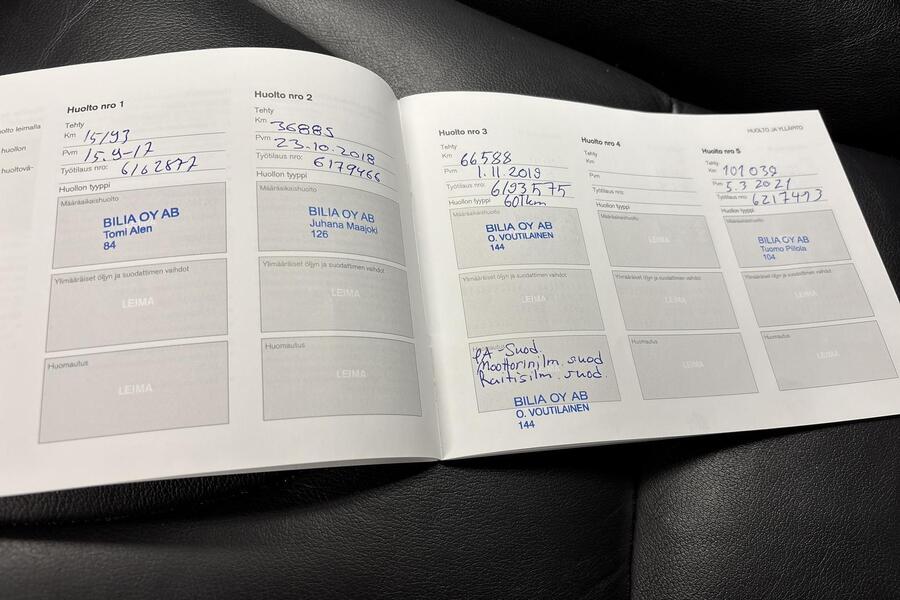 olto leimalla
huollon
huoltovä-
Huolto nro 1
Tehty
Km 15193
Pvm 15.9-17
Työtilaus nro: 6162877
Huollon tyyppi
Määräaikaishuolto
BILIA OY AB
Tomi Alen
84
Ylimääräiset öljyn ja suodattimen vaihdot
LEIMA
Huomautus
LEIMA
Huolto nro 2
Tehty
Km 36885
Pvm 23.10.2018
Työtilaus nro: 6179466
Huollon tyyppi
Määräaikaishuolto
BILIA OY AB
Juhana Maajoki
126
Ylimääräiset öljyn ja suodattimen vaihdot
LEIMA
Huomautus
LEIMA
Huolto nro 3
Tehty
Km 66588
Pvm 1.11.2019
Työtilaus nro: 6193575
Huollon tyyppi 60Tkm
Määräaikaishuolto
BILIA OY AB
O. VOUTILAINEN
144
Ylimääräiset öljyn ja suodattimen vaihdot
LEIMA
Huomautus
PA-Suod.
Moottorinilm. suod
Raitisilm. suod.
BILIA OY AB
O. VOUTILAINEN
144
Huolto nro 4
Tehty
Km
Pvm
Työtilaus nro:
Huollon tyyppi
Määräaikaishuolto
LEIMA
Ylimääräiset öljyn ja suodattimen vaihdot
LEIMA
Huomautus
LEIMA
HUOLTO JA YLLÄPITO
Huolto nro 5
Tehty
Km 101039
Pvm 5.3 2021
Työtilaus nro: 6217493
Huollon tyyppi
Määräaikaishuolto
BILIA OY AB
Tuomo Piilola
104
Ylimääräiset öljyn ja suodattimen vaihdot
LEIMA
Huomautus
LEIMA